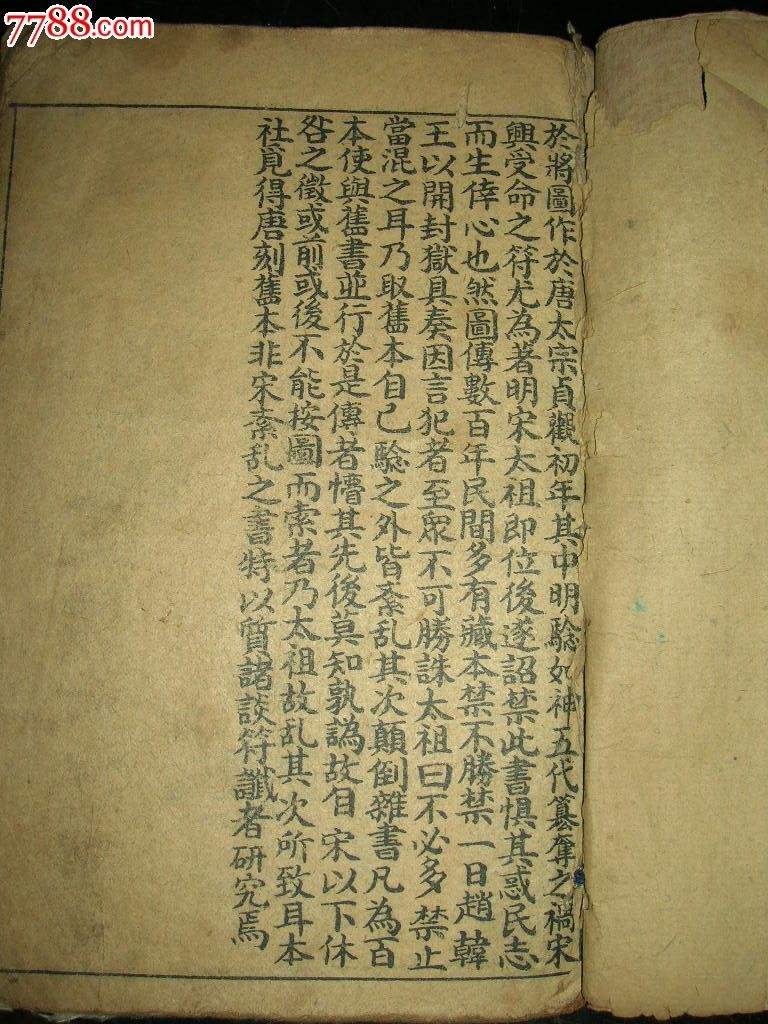 7788.com
於將圖作於唐太宗貞觀初年其中明騐如神五代簒奪之禍宋
興受命之符尤為著明宋太祖即位後遂詔禁此書惧其惑民志
而生倖心也然圖傳數百年民間多有藏本禁不勝禁一日趙韓
王以開封獄具奏因言犯者至眾不可勝誅太祖曰不必多禁止
當混之耳乃取舊本自已騐之外皆紊乱其次顛倒雜書凡為百
本使與舊書並行於是傳者懵其先後莫知孰譌故自宋以下休
咎之徵或前或後不能按圖而索者乃太祖故乱其次所致耳本
社覓得唐刻舊本非宋紊乱之書特以質諸談符讖者研究焉